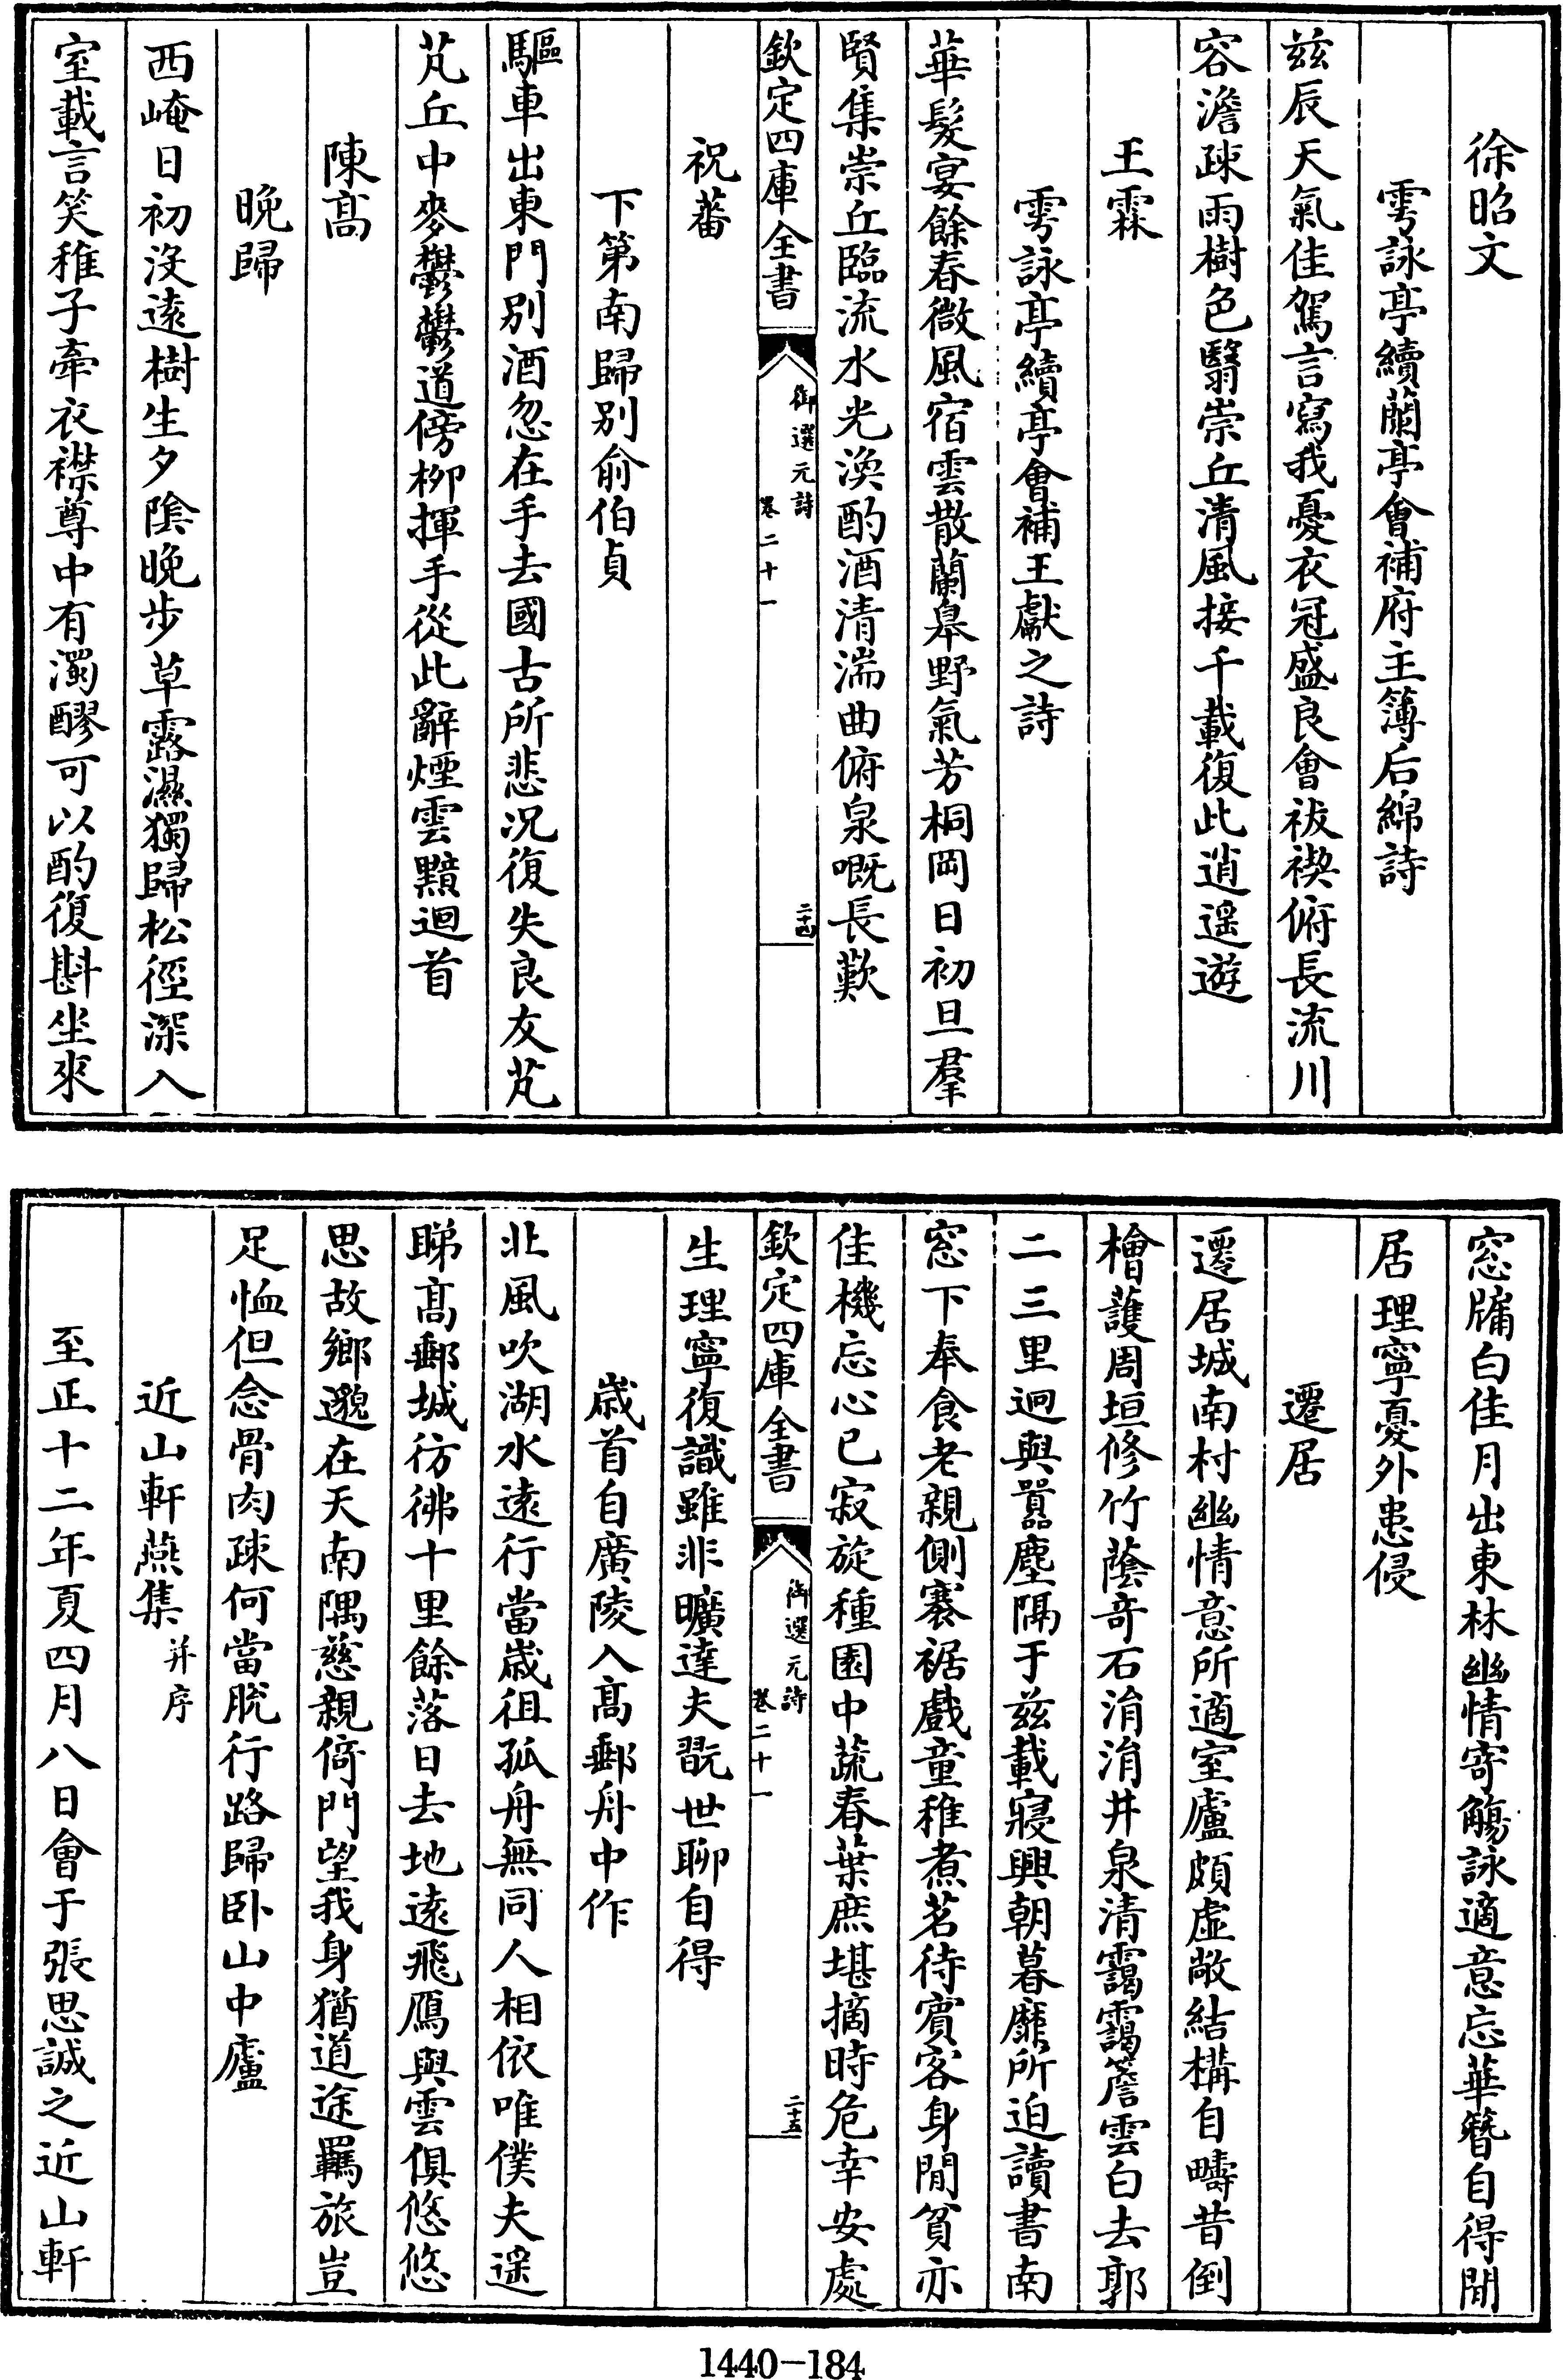 徐昭文
雩詠亭續蘭亭會補府主簿后綿詩
茲辰天氣佳駕言寫我憂衣冠盛良會祓禊俯長流川
容澹疎雨樹色翳崇丘清風接千載復此逍遥遊
王霖
雩詠亭續亭會補王獻之詩
華髮宴餘春微風宿雲散蘭皋野氣芳桐岡日初旦羣
賢集崇丘臨流水光渙酌酒清湍曲俯泉嘅長歎
欽定四庫全書
御選元詩
卷二十一
二十四
祝蕃
下第南歸别俞伯貞
驅車出東門别酒忽在手去國古所悲況復失良友芃
芃丘中麥鬱鬱道傍柳揮手從此辭煙雲黯迴首
陳髙
晚歸
西崦日初没遠樹生夕陰晚步草露濕獨歸松徑深入
室載言笑稚子牽衣襟尊中有濁醪可以酌復斟坐來
窓牖白佳月出東林幽情寄觴詠適意忘華簪自得閒
居理寧憂外患侵
遷居
遷居城南村幽情意所適室廬頗虚敞結構自疇昔倒
檜護周垣修竹蔭奇石涓涓井泉清靄靄簷雲白去郭
二三里迥與囂塵隔于茲載寢興朝暮靡所迫讀書南
窓下奉食老親側褰裾戲童稚煮茗待賓客身閒貧亦
佳機忘心已寂旋種園中蔬春葉庶堪摘時危幸安處
欽定四庫全書
御選元詩
卷二十一
二十五
生理寧復識雖非曠達夫翫世聊自得
歲首自廣陵入髙郵舟中作
北風吹湖水遠行當歲徂孤舟無同人相依唯僕夫遥
睇髙郵城彷彿十里餘落日去地遠飛鴈與雲俱悠悠
思故鄉邈在天南隅慈親倚門望我身猶道途羈旅豈
足恤但念骨肉疎何當脱行路歸卧山中廬
近山軒燕集并序
至正十二年夏四月八日會于張思誠之近山軒
1440-184